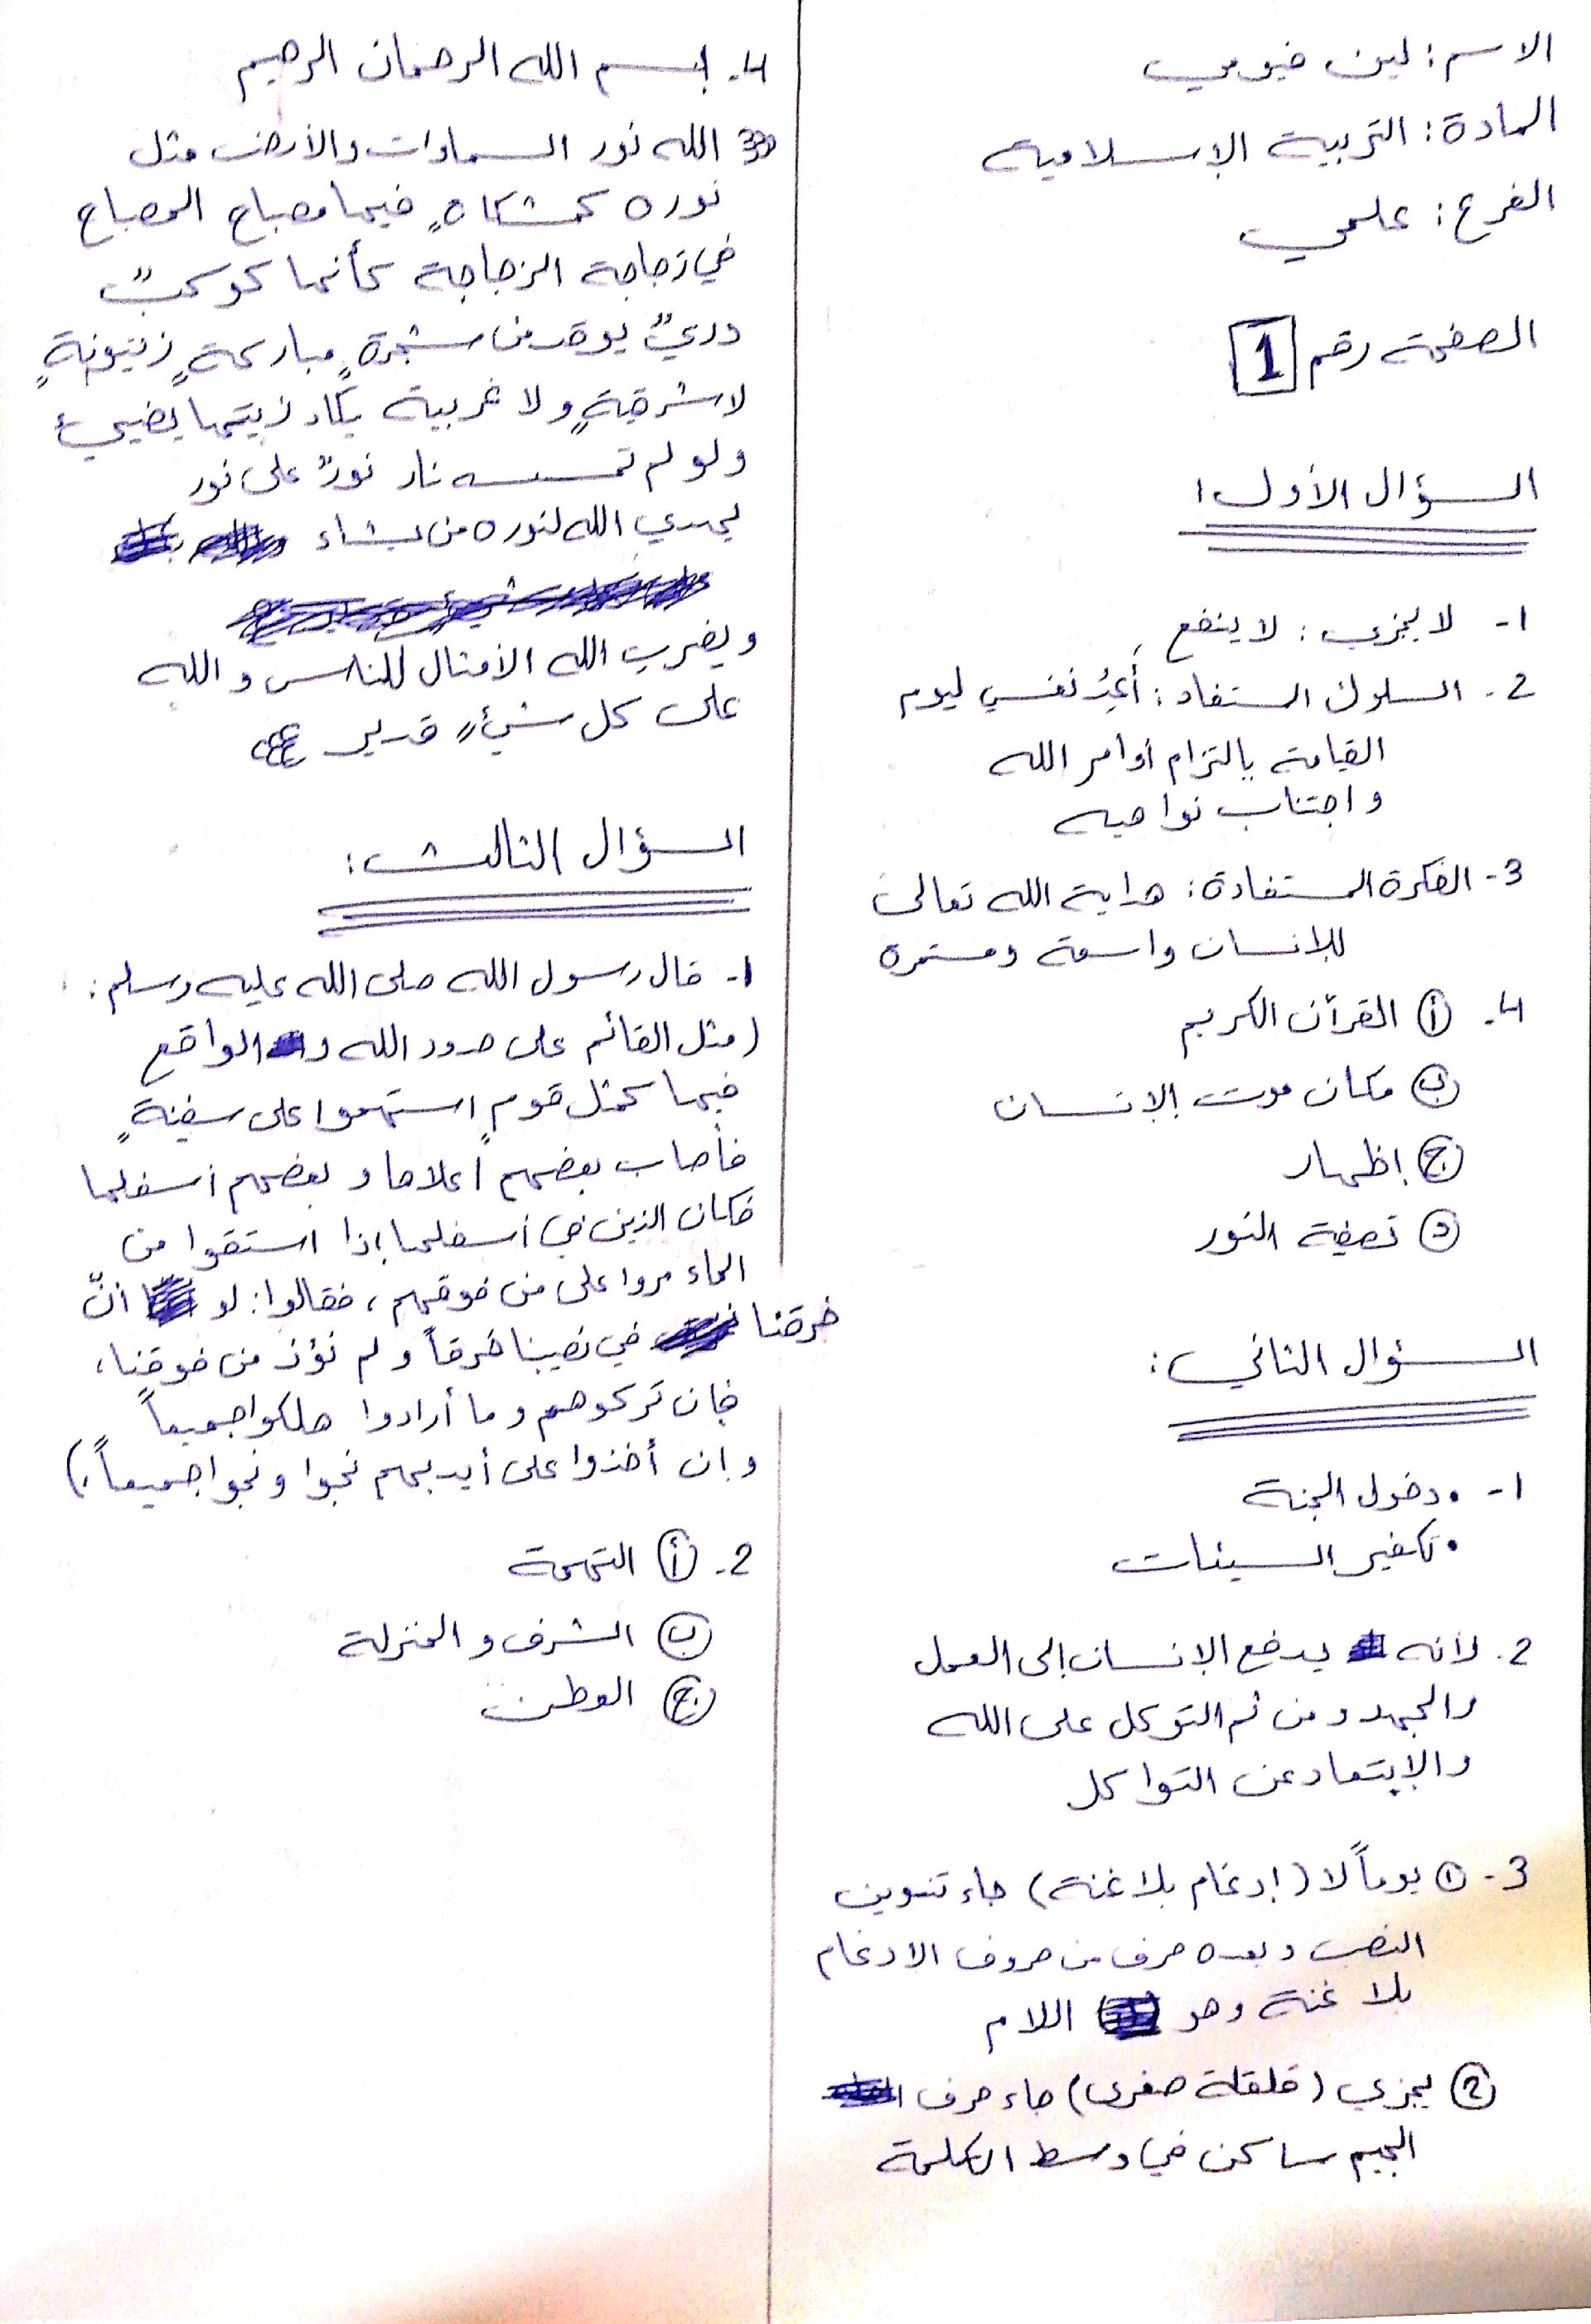 الاسم: لين فيومي
المادة: التربية الإسلامية
الفرع: علمي
الصفحة رقم 1
السؤال الأول:
1- لا يجزي: لا ينفع
2- السلوك المستفاد: أُعِدُ نفسي ليوم
القيامة بالتزام أوامر الله
واجتناب نواهيه
3- الفكرة المستفادة: هداية الله تعالى
للإنسان واسعة ومستمرة
4. أ القرآن الكريم
ب مكان موت الإنسان
ج إظهار
د تصفية النور
السؤال الثاني:
1- • دخول الجنة
• تكفير السيئات
2. لأنه يدفع الإنسان إلى العمل
والجهد ومن ثم التوكل على الله
والإبتعاد عن التواكل
3- ① يوماً لا (إدغام بلا غنة) جاء تنوين
النصب وبعده حرف من حروف الادغام
بلا غنة وهو اللام
② يجزي (قلقلة صغرى) جاء حرف
الجيم ساكن في وسط الكلمة
4. بسم الله الرحمان الرحيم
الله نور السماوات والأرض مثل
نوره كمشكاةٍ فيها مصباح المصباح
في زجاجة الزجاجة كأنها كوكبٌ
دريٌ يوقد من شجرةٍ مباركةٍ زيتونةٍ
لا شرقيةٍ ولا غربية يكاد زيتها يضيئ
ولو لم تمسسه نار نورٌ على نور
يهدي الله لنوره من يشاء
ويضرب الله الأمثال للناس والله
على كل شيءٍ قدير
السؤال الثالث:
1- قال رسول الله صلى الله عليه وسلم:
(مثل القائم على حدود الله والواقع
فيها كمثل قومٍ استهموا على سفينةٍ
فأصاب بعضهم أعلاها وبعضهم أسفلها
فكان الذين في أسفلها إذا استقوا من
الماء مروا على من فوقهم، فقالوا: لو أنّ
خرقنا في نصيبنا خرقاً ولم نؤذ من فوقنا،
فإن تركوهم وما أرادوا هلكوا جميعاً
وإن أخذوا على أيديهم نجوا ونجوا جميعاً.)
2. أ التهمة
ب الشرف والمنزلة
ج الوطن